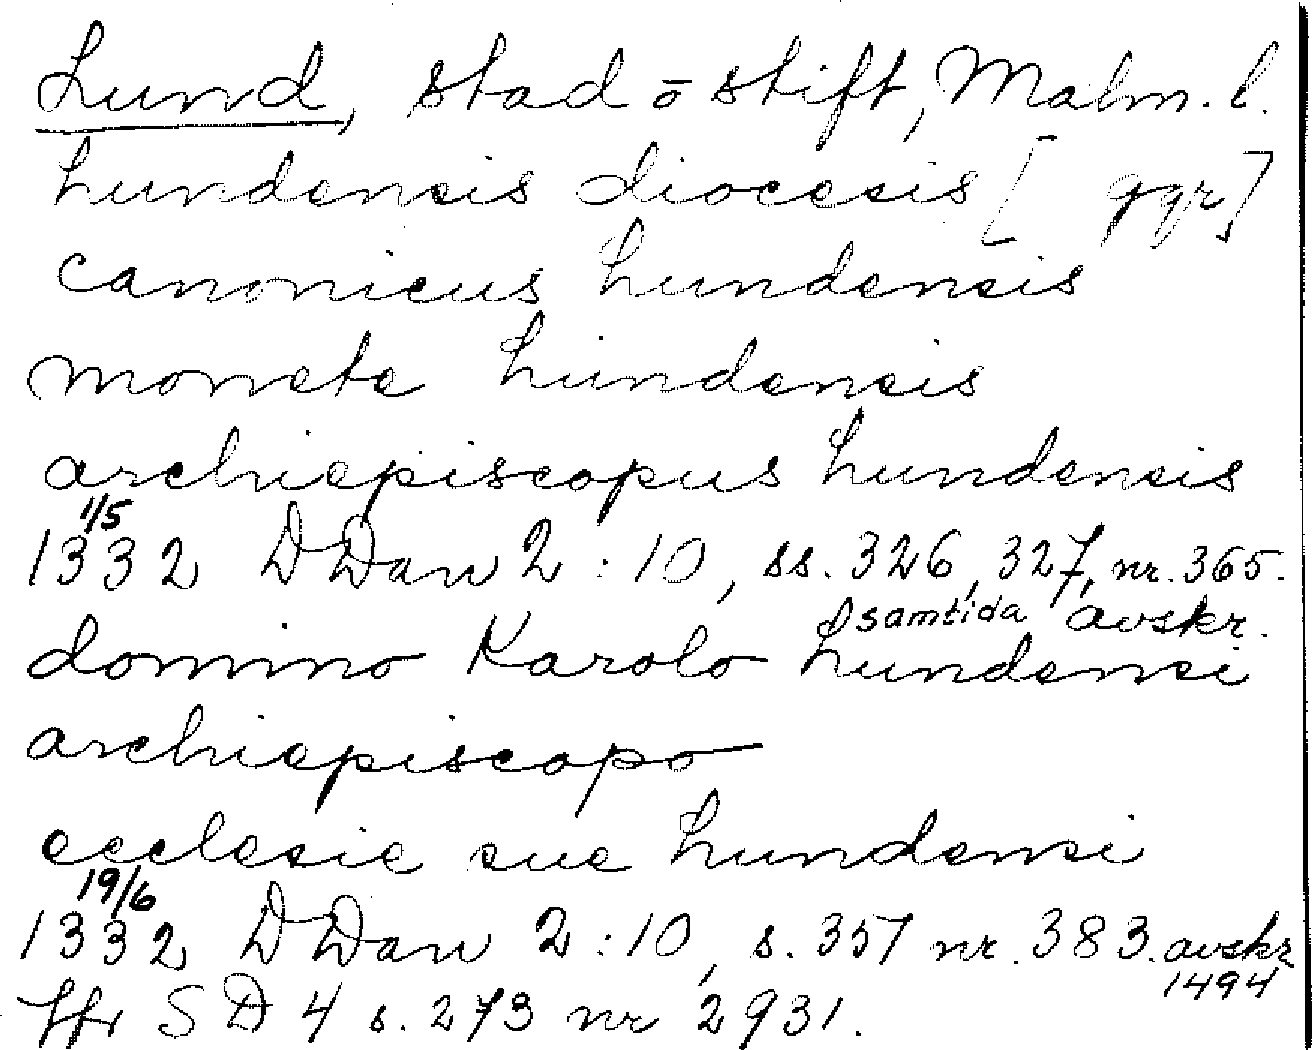 Lund, stad o stift, Malm. l.
Lundensis diocesis [ ggr]
canonicus Lundensis
monete Lundensis
archiepiscopus Lundensis
1/5
1332 DDan 2:10, ss. 326, 327, nr. 365.
samtida avskr.
domino Karolo Lundensi
archiepiscopo
ecclesie sue Lundensi
19/6
1332 DDan 2:10, s. 357 nr. 383. avskr
1494
Jfr SD 4 s. 273 nr 2931.